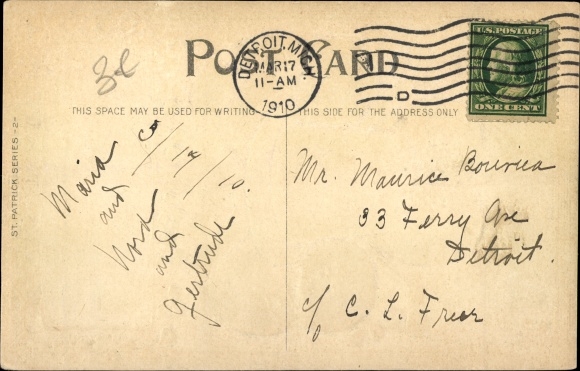 POST CARD
3¢
DETROIT, MICH.
MAR 17
11-AM
1910
D
U.S. POSTAGE
ONE CENT
THIS SPACE MAY BE USED FOR WRITING
THIS SIDE FOR THE ADDRESS ONLY
ST. PATRICK SERIES -2-
3/17/10.
Maria
and
Nora
and
Gertrude
Mr. Maurice
33 Ferry Ave
Detroit.
c/o C. L. Freer